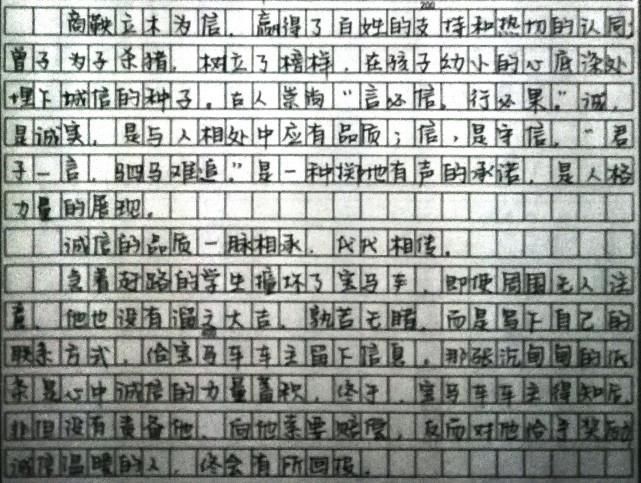 200
商鞅立木为信,赢得了百姓的支持和热切的认同;
曾子为子杀猪,树立了榜样,在孩子幼小的心底深处
埋下城信的种子。古人崇尚“言必信,行必果。”诚,
是诚实,是与人相处中应有品质;信,是守信。“君
子一言,驷马难追。”是一种掷地有声的承诺,是人格
力量的展现。
诚信的品质一脉相承,代代相传。
急着赶路的学生撞坏了宝马车,即使周围无人注
意,他也没有溜之大吉,熟若无睹,而是写下自己的
联系方式,给宝马车车主留下信息,那张沉甸甸的纸
条是心中诚信的力量蓄积,终于,宝马车车主得知后,
非但没有责备他,向他索要赔偿,反而对他给予奖励
诚信温暖的人,终会有所回报。